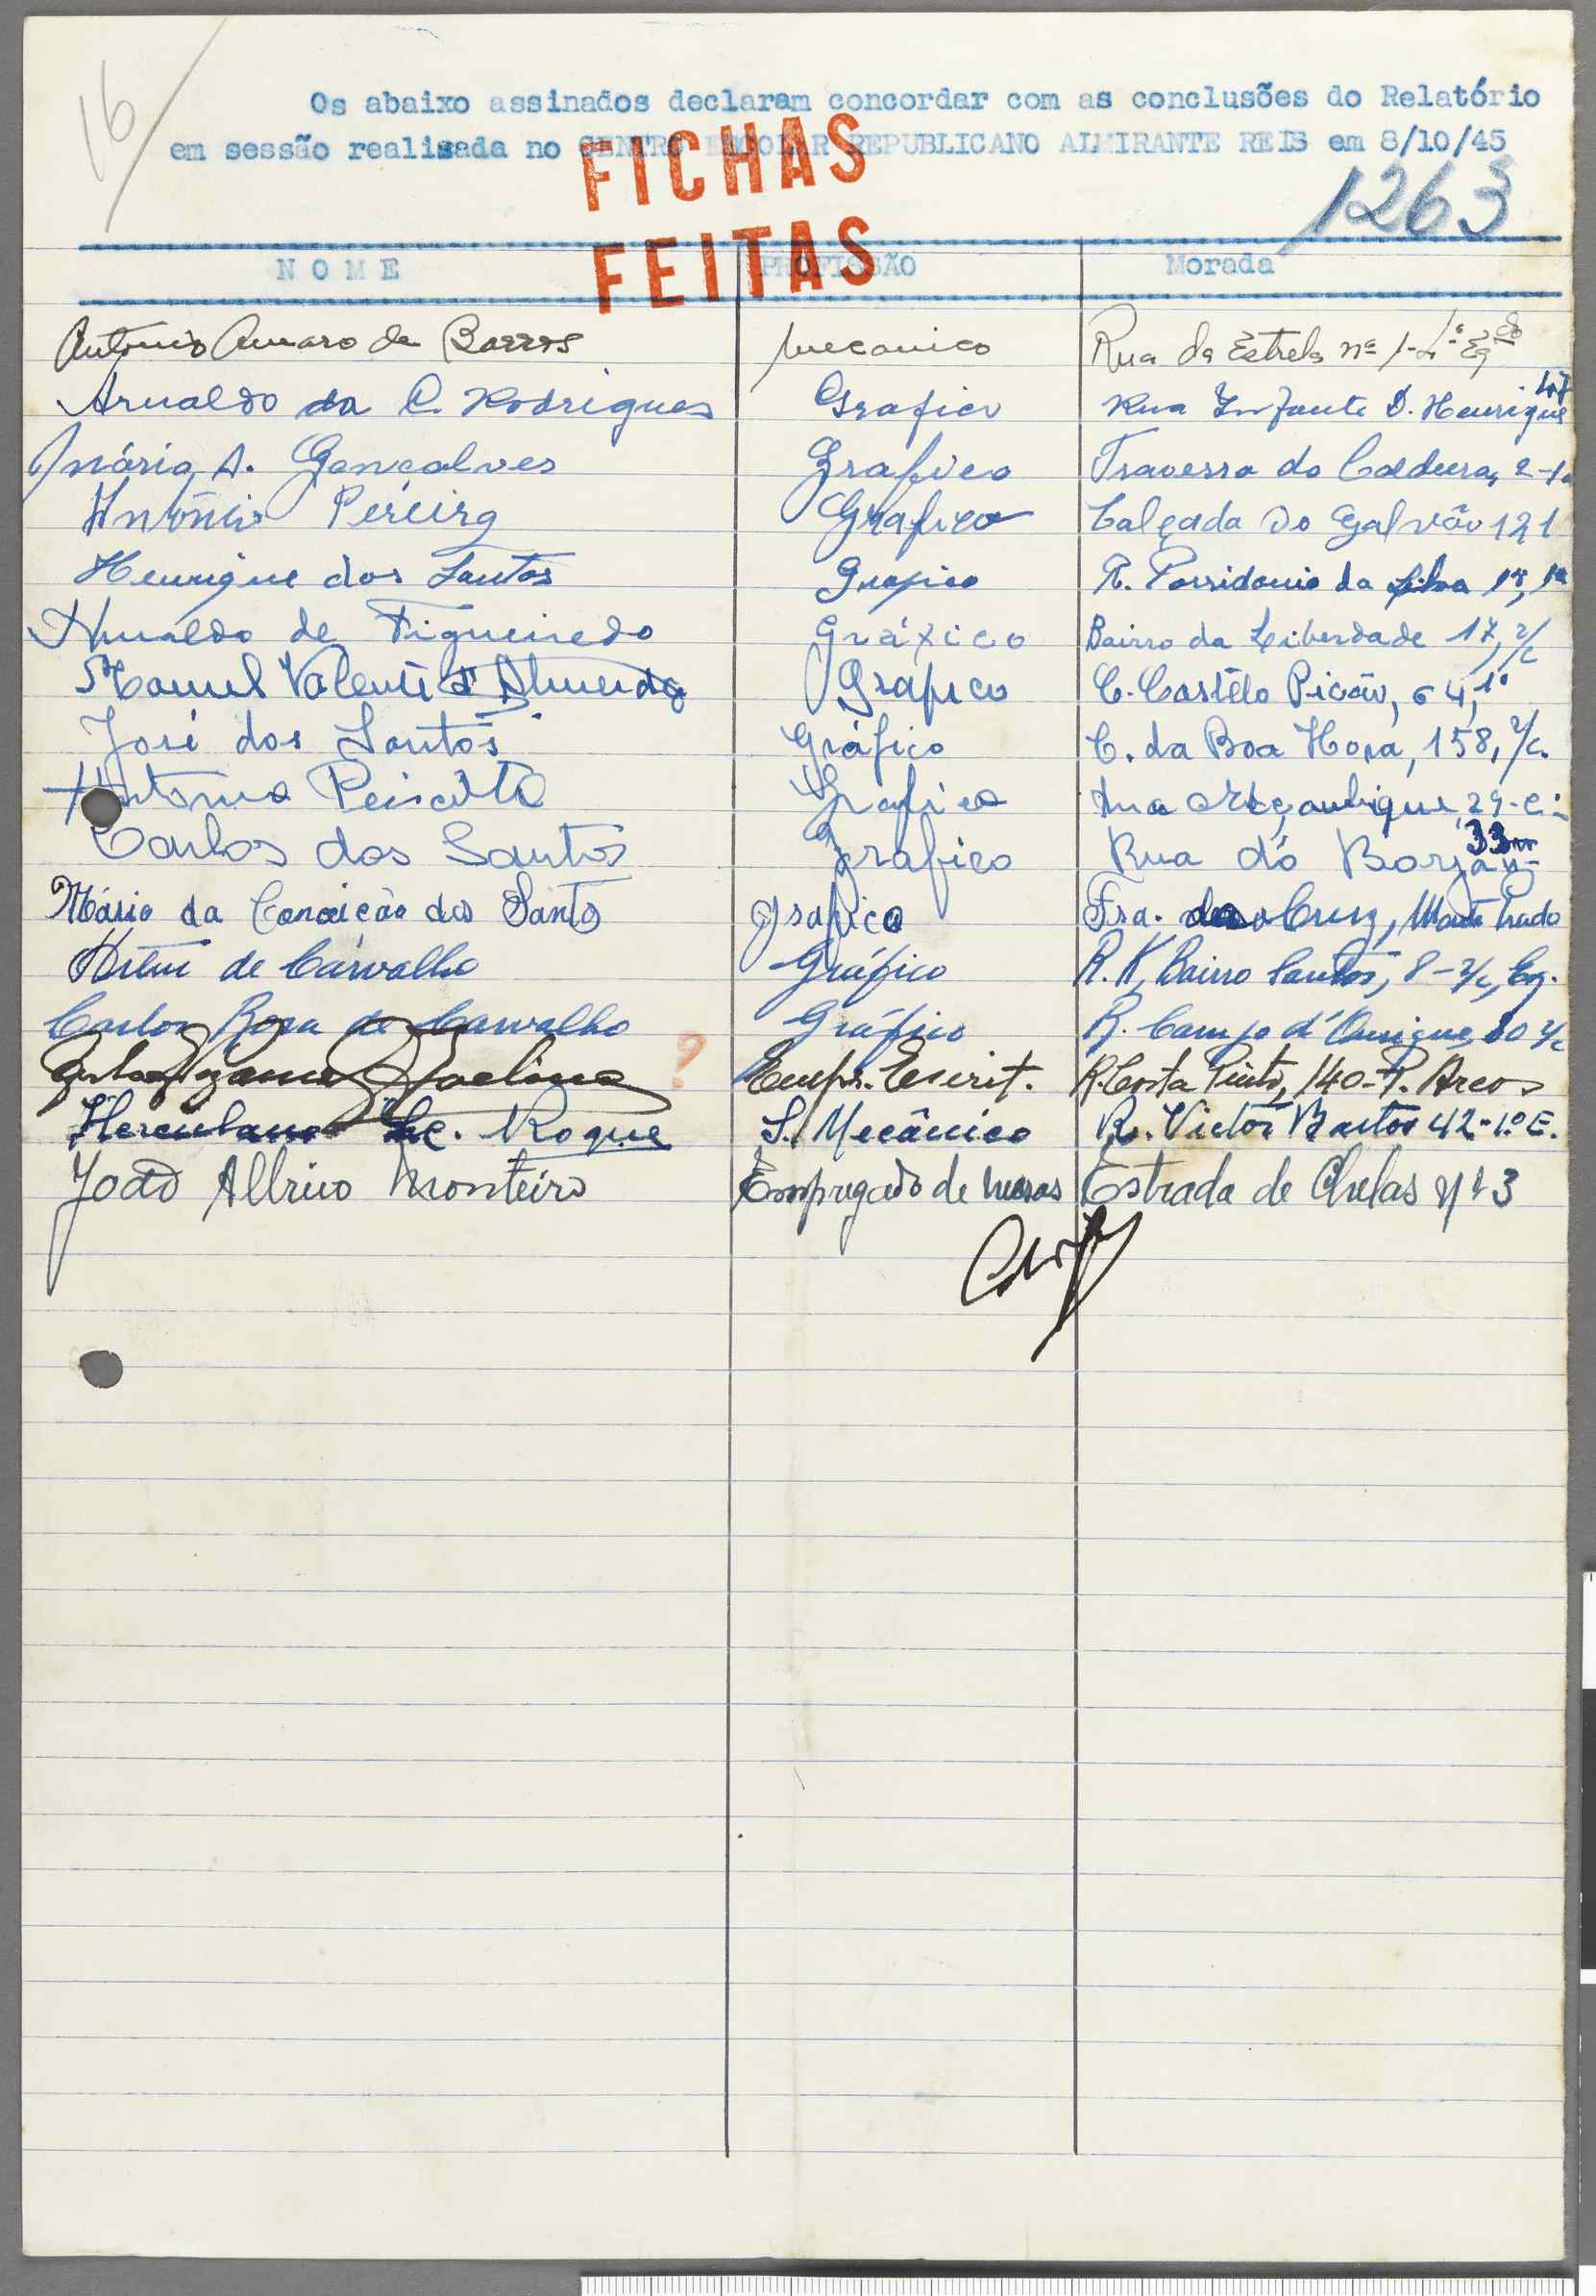 16
Os abaixo assinados declaram concordar com as conclusões do Relatório
em sessão realisada no CENTRO ESCOLAR REPUBLICANO ALMIRANTE REIS em 8/10/45
FICHAS
FEITAS
1263
NOME PROFISSÃO Morada
Antonio Amaro de Barros Mecanico Rua da Estrela nº 1-
Arnaldo da C. Rodrigues Grafico Rua Infante D. Henrique 47
Mário A. Gonçalves Grafico Travessa do Caldeira, 2-1º
António Pereira Grafico Calçada do Galvão 121
Henrique dos Santos Grafico R. Possidonio da Silva
Arnaldo de Figueiredo Gráfico Bairro da Liberdade 17, r/c
Manuel Valente d'Almeida Grafico C. Castêlo Picão, 64, 1º
José dos Santos Gráfico C. da Boa Hora, 158, r/c.
Antonio Peixoto Grafico Rua Moçambique, 29-
Carlos dos Santos Grafico Rua do Borja 33
Mário da Conceição dos Santos grafico Tra. da Cruz, Monte Prado
Artur de Carvalho Gráfico R. K, Bairro Santos, 8-r/c, Esq.
Carlos Rosa de Carvalho Gráfico R. Campo d'Ourique, 80 r/c
? Empr. Escrit. R. Costa Pinto, 140-P. Arcos
Herculano Roque S. Mecânico R. Victor Bastos 42-1.º E.
João Albrico Monteiro Empregado de mesas Estrada de Chelas nº 3